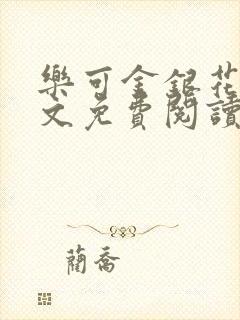 樂可金銀花
文免費閱讀
蘭喬